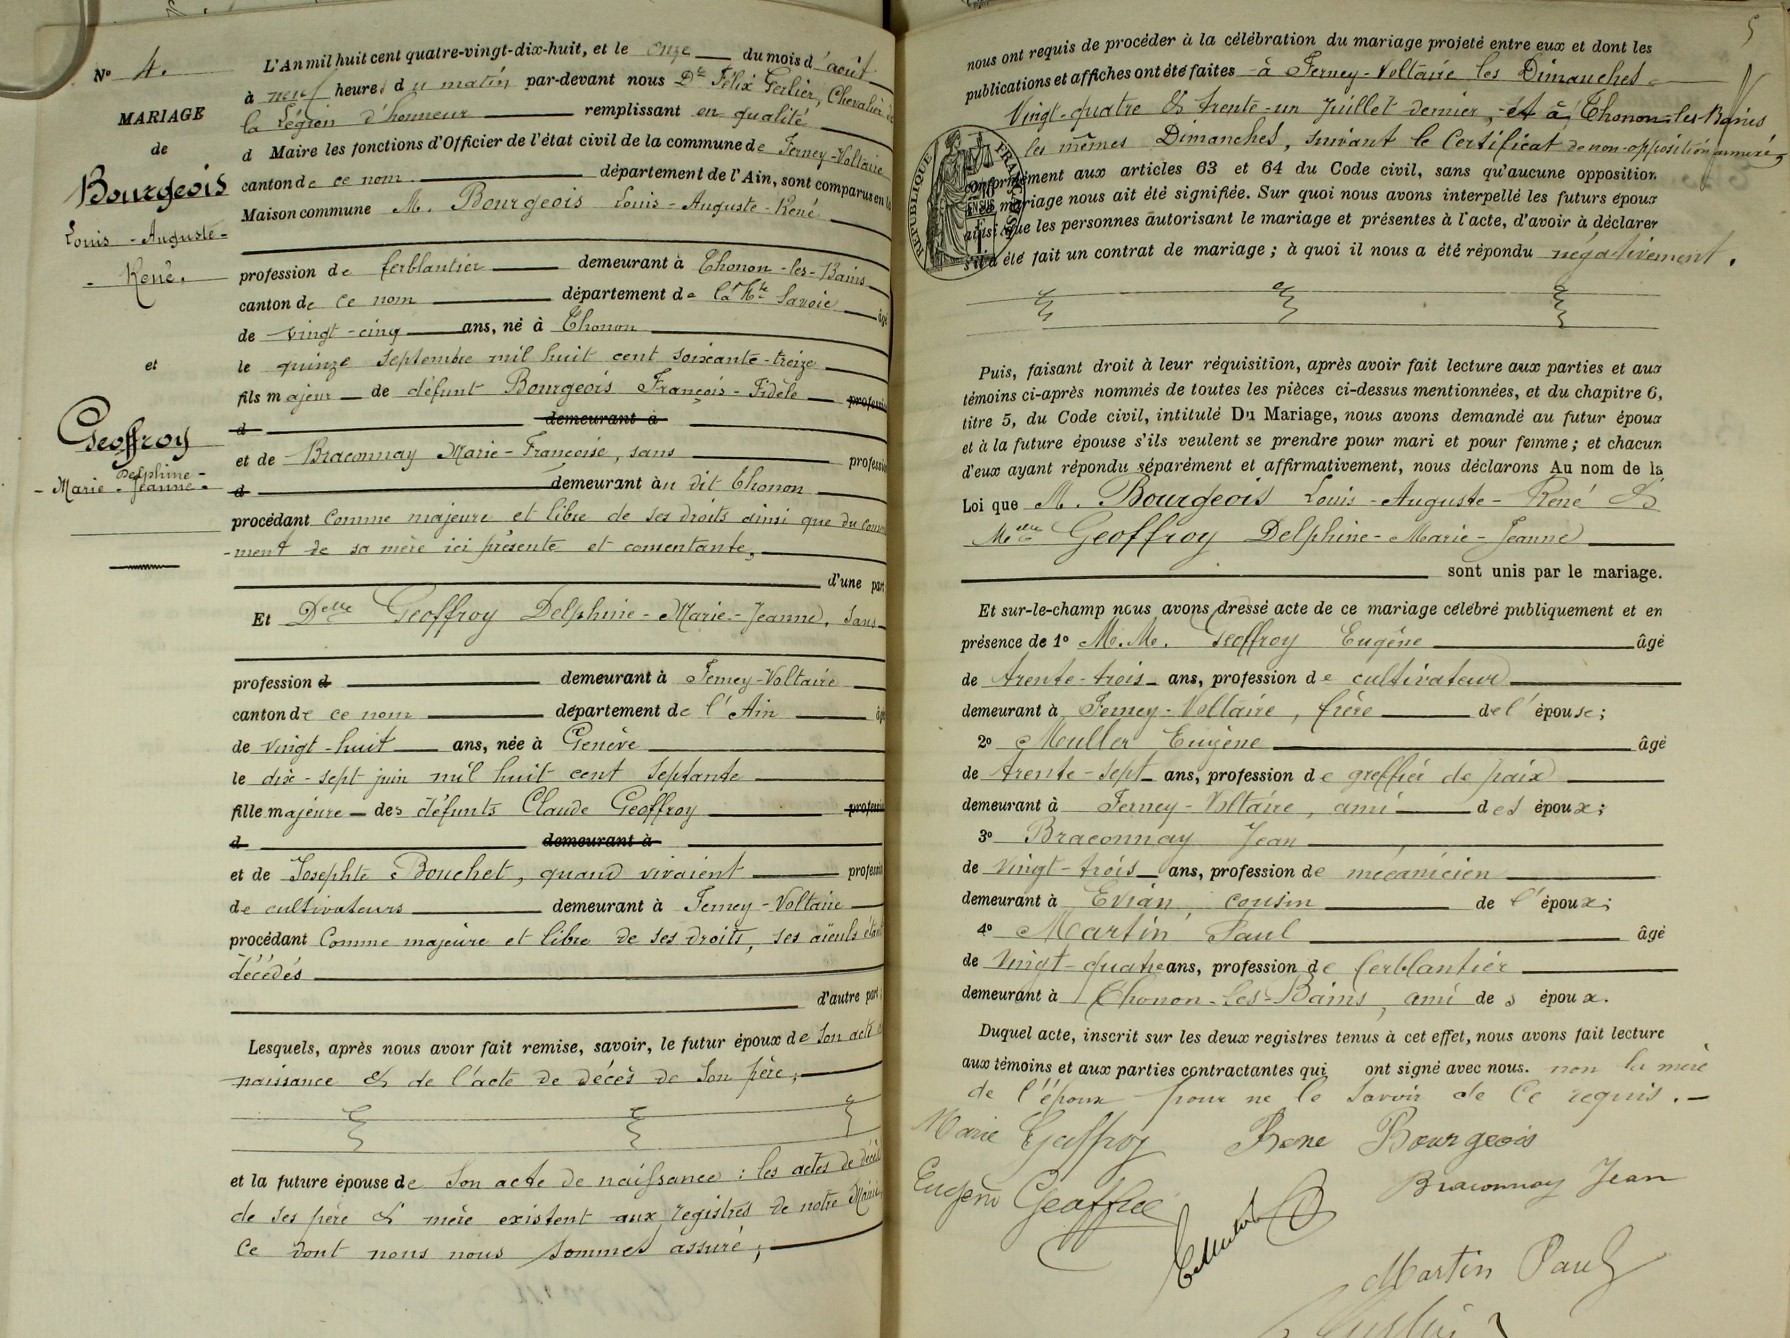 N° 4.
MARIAGE
de
Bourgeois
Louis - Auguste -
- René.
et
Geoffroy
Delphine -
- Marie - Jeanne -
L'An mil huit cent quatre-vingt-dix-huit, et le onze du mois d'août
à neuf heures du matin par-devant nous Dr Félix Gerlier, Chevalier de
la Légion d'honneur remplissant en qualité
d Maire les fonctions d'Officier de l'état civil de la commune de Ferney-Voltaire
canton de ce nom département de l'Ain, sont comparus en la
Maison commune M. Bourgeois Louis - Auguste - René
profession de ferblantier demeurant à Thonon-les-Bains
canton de ce nom département de la Hte Savoie âgé
de vingt-cinq ans, né à Thonon
le quinze septembre mil huit cent soixante-treize
fils majeur de défunt Bourgeois François-Fidèle profession
d demeurant à
et de Braconnay Marie-Françoise, sans profession
d demeurant au dit Thonon
procédant comme majeure et libre de ses droits ainsi que du consen
-ment de sa mère ici présente et consentante,
d'une part
Et Delle Geoffroy Delphine-Marie-Jeanne, sans
profession d demeurant à Ferney-Voltaire
canton de ce nom département de l'Ain âgé
de vingt-huit ans, née à Genève
le dix-sept juin mil huit cent septante
fille majeure des défunts Claude Geoffroy profession
d demeurant à
et de Josephte Bouchet, quand vivaient profession
de cultivateurs demeurant à Ferney-Voltaire
procédant comme majeure et libre de ses droits, ses aïeuls étant
décédés
d'autre part
Lesquels, après nous avoir fait remise, savoir, le futur époux de son acte de
naissance & de l'acte de décès de son père,
et la future épouse de son acte de naissance : les actes de décès
de ses père & mère existent aux registres de notre Mairie
ce dont nous nous sommes assuré,
5
nous ont requis de procéder à la célébration du mariage projeté entre eux et dont les
publications et affiches ont été faites à Ferney-Voltaire les Dimanches
Vingt-quatre & trente-un juillet dernier, et à Thonon-les-Bains
les mêmes Dimanches, suivant le certificat de non-opposition annexé,
RÉPUBLIQUE FRANÇAISE
conformément aux articles 63 et 64 du Code civil, sans qu'aucune opposition
au mariage nous ait été signifiée. Sur quoi nous avons interpellé les futurs époux
ainsi que les personnes autorisant le mariage et présentes à l'acte, d'avoir à déclarer
s'il a été fait un contrat de mariage ; à quoi il nous a été répondu négativement.
Puis, faisant droit à leur réquisition, après avoir fait lecture aux parties et aux
témoins ci-après nommés de toutes les pièces ci-dessus mentionnées, et du chapitre 6,
titre 5, du Code civil, intitulé Du Mariage, nous avons demandé au futur époux
et à la future épouse s'ils veulent se prendre pour mari et pour femme ; et chacun
d'eux ayant répondu séparément et affirmativement, nous déclarons Au nom de la
Loi que M. Bourgeois Louis-Auguste-René &
Melle Geoffroy Delphine-Marie-Jeanne
sont unis par le mariage.
Et sur-le-champ nous avons dressé acte de ce mariage célébré publiquement et en
présence de 1° M.M. Geoffroy Eugène âgé
de trente-trois ans, profession de cultivateur
demeurant à Ferney-Voltaire, frère de l'épouse ;
2° Muller Eugène âgé
de trente-sept ans, profession de greffier de paix
demeurant à Ferney-Voltaire, ami des époux ;
3° Braconnay Jean
de vingt-trois ans, profession de mécanicien
demeurant à Evian, cousin de l'époux ;
4° Martin Paul âgé
de vingt-quatre ans, profession de ferblantier
demeurant à Thonon-les-Bains, ami des époux.
Duquel acte, inscrit sur les deux registres tenus à cet effet, nous avons fait lecture
aux témoins et aux parties contractantes qui ont signé avec nous. non la mère
de l'époux pour ne le savoir de ce requis.
Marie Geoffroy René Bourgeois
Eugène Geoffroy Braconnay Jean
Martin Paul